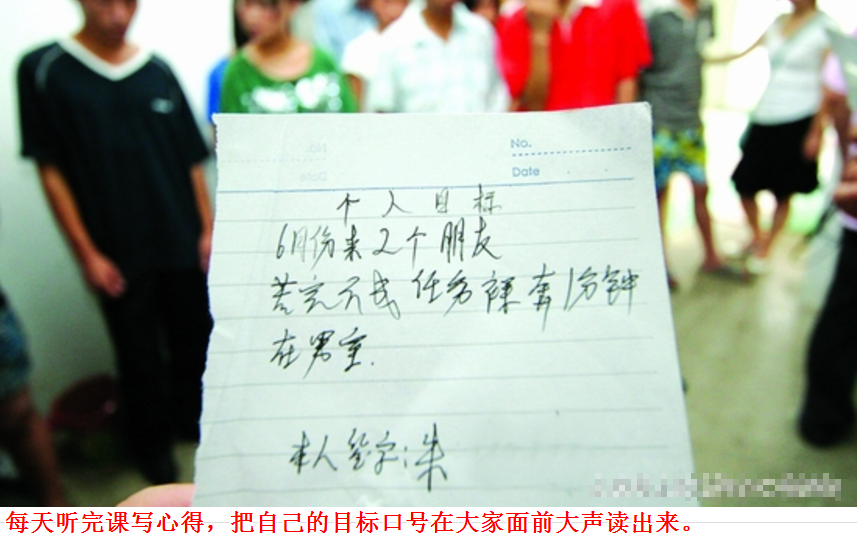 No.
Date
个人目标
6月份来2个朋友
若完不成任务裸奔1分钟
在男室.
本人签字:朱
每天听完课写心得，把自己的目标口号在大家面前大声读出来。